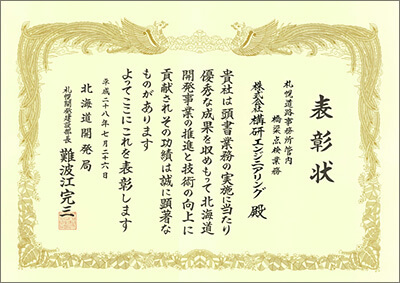 表彰状
札幌道路事務所管内
橋梁点検業務
株式会社構研エンジニアリング 殿
貴社は頭書業務の実施に当たり
優秀な成果を収めもって北海道
開発事業の推進と技術の向上に
貢献されその功績は誠に顕著な
ものがあります
よってここにこれを表彰します
平成二十八年七月二十六日
北海道開発局
札幌開発建設部長 難波江完三